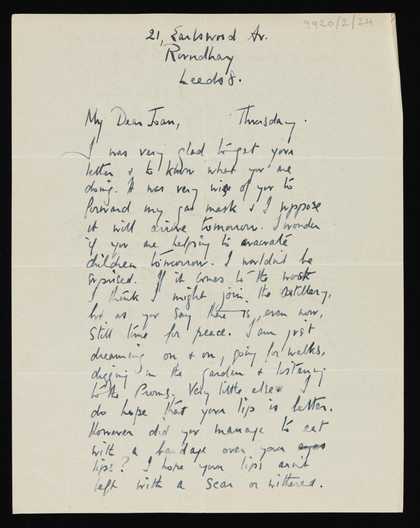 9920/2/24
21, Earlswood Av.
Roundhay
Leeds 8.
My Dear Joan, Thursday.
I was very glad to get your
letter & to know what you are
doing. It was very wise of you to
forward my gas mask & I suppose
it will arrive tomorrow. I wonder
if you are helping to evacuate
children tomorrow. I wouldn't be
surprised. If it comes to the worst
I think I might join the Artillery,
but as you say there is, even now,
still time for peace. I am just
dreaming on & on, going for walks,
digging in the garden & listening
to the Proms. Very little else
do hope that your lip is better.
However did you manage to eat
with a bandage over your eyes
lips? I hope your lips aren't
left with a scar or withered.